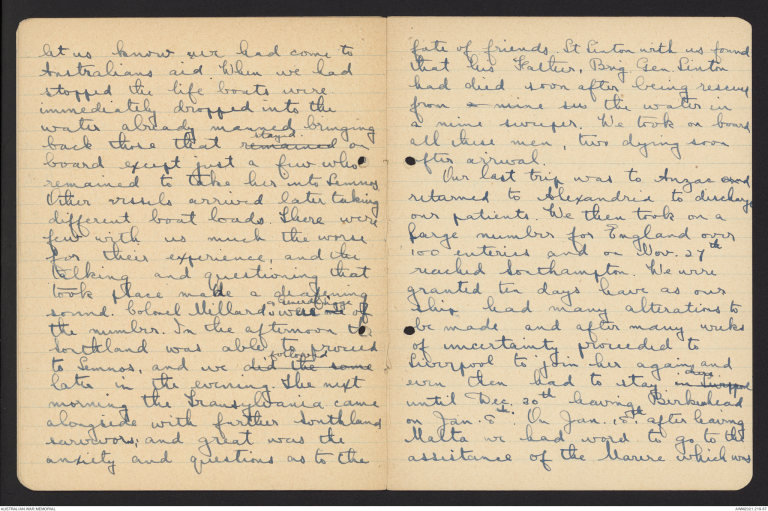 let us know we had come to
Australians aid. When we had
stopped the life boats were
immediately dropped into the
water already manned bringing
back those that remained stayed on
board except just a few who
remained to take her into Lemnos
Other vessels arrived later taking
different boat loads. There were
few with us much the worse
for their experience, and the
talking and questioning that
took place made a deafening
sound. Colonel Millard & was one of
the number. In the afternoon the
Southland was able to proceed
to Lemnos, and we did the same followed
late in the evening. The next
morning the Transylvania came
alongside with further Southland
survivors; and great was the
anxiety and questions as to the
fate of friends. Lt Linton with us found
that his Father, Brig Gen. Linton
had died soon after being rescued
from the water in
a mine sweeper. We took on board
all these men, two dying soon
after arrival.
Our last trip was to Anzac and
returned to Alexandria to discharge
our patients. We then took on a
large number for England over
100 enterics and on Nov. 27th
reached Southampton. We were
granted ten days leave as our
ship had many alterations to
be made and after many weeks
of uncertainty proceeded to
Liverpool to join her again, and
even then had to stay in days
until Dec. 30th leaving Birkenhead
on Jan. 8th. On Jan. 18th after leaving
Malta we had word to go to the
assistance of the Marere which was
AUSTRALIAN WAR MEMORIAL